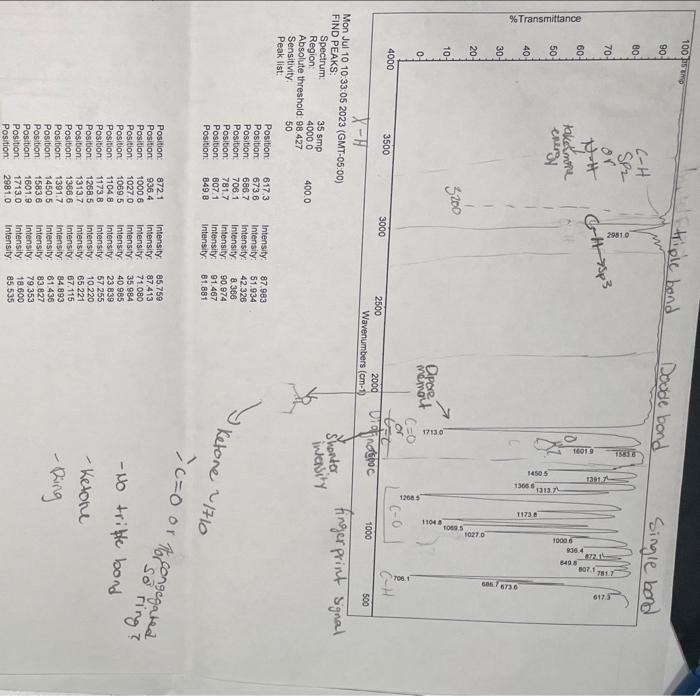 Triple bond
Double bond
Single bond
35 smp
%Transmittance
100
90
80
70
60
50
40
30
20
10
0
4000
3500
3000
2500
2000
1500
1000
500
Wavenumbers (cm-1)
C-H
sp2
or
N-H
take more
energy
3200
2981.0
C-H→sp3
X-H
1713.0
C=O
or
C=C
1601.9
1583.6
1450.5
1391.7
1366.6
1313.7
1268.5
1173.8
1104.8
1069.5
1027.0
1000.6
936.4
872.1
849.8
807.1
781.7
706.1
686.7
673.6
617.3
C-O
C-H
Shorter
intensity
fingerprint signal
Mon Jul 10 10:33:05 2023 (GMT-05:00)
FIND PEAKS:
Spectrum: 35 smp
Region: 4000.0 400.0
Absolute threshold: 98.427
Sensitivity: 50
Peak list:
Position: 617.3 Intensity: 87.983
Position: 673.6 Intensity: 51.934
Position: 686.7 Intensity: 42.326
Position: 706.1 Intensity: 8.386
Position: 781.7 Intensity: 90.974
Position: 807.1 Intensity: 91.467
Position: 849.8 Intensity: 81.881
Position: 872.1 Intensity: 85.759
Position: 936.4 Intensity: 87.413
Position: 1000.6 Intensity: 71.080
Position: 1027.0 Intensity: 35.984
Position: 1069.5 Intensity: 40.985
Position: 1104.8 Intensity: 23.839
Position: 1173.8 Intensity: 57.255
Position: 1268.5 Intensity: 10.220
Position: 1313.7 Intensity: 65.221
Position: 1366.6 Intensity: 67.115
Position: 1391.7 Intensity: 84.893
Position: 1450.5 Intensity: 61.436
Position: 1583.6 Intensity: 83.827
Position: 1601.9 Intensity: 79.353
Position: 1713.0 Intensity: 18.600
Position: 2981.0 Intensity: 85.535
Ketone ~1710
C=O or
ring?
-No trible bond
-Ketone
-Ring